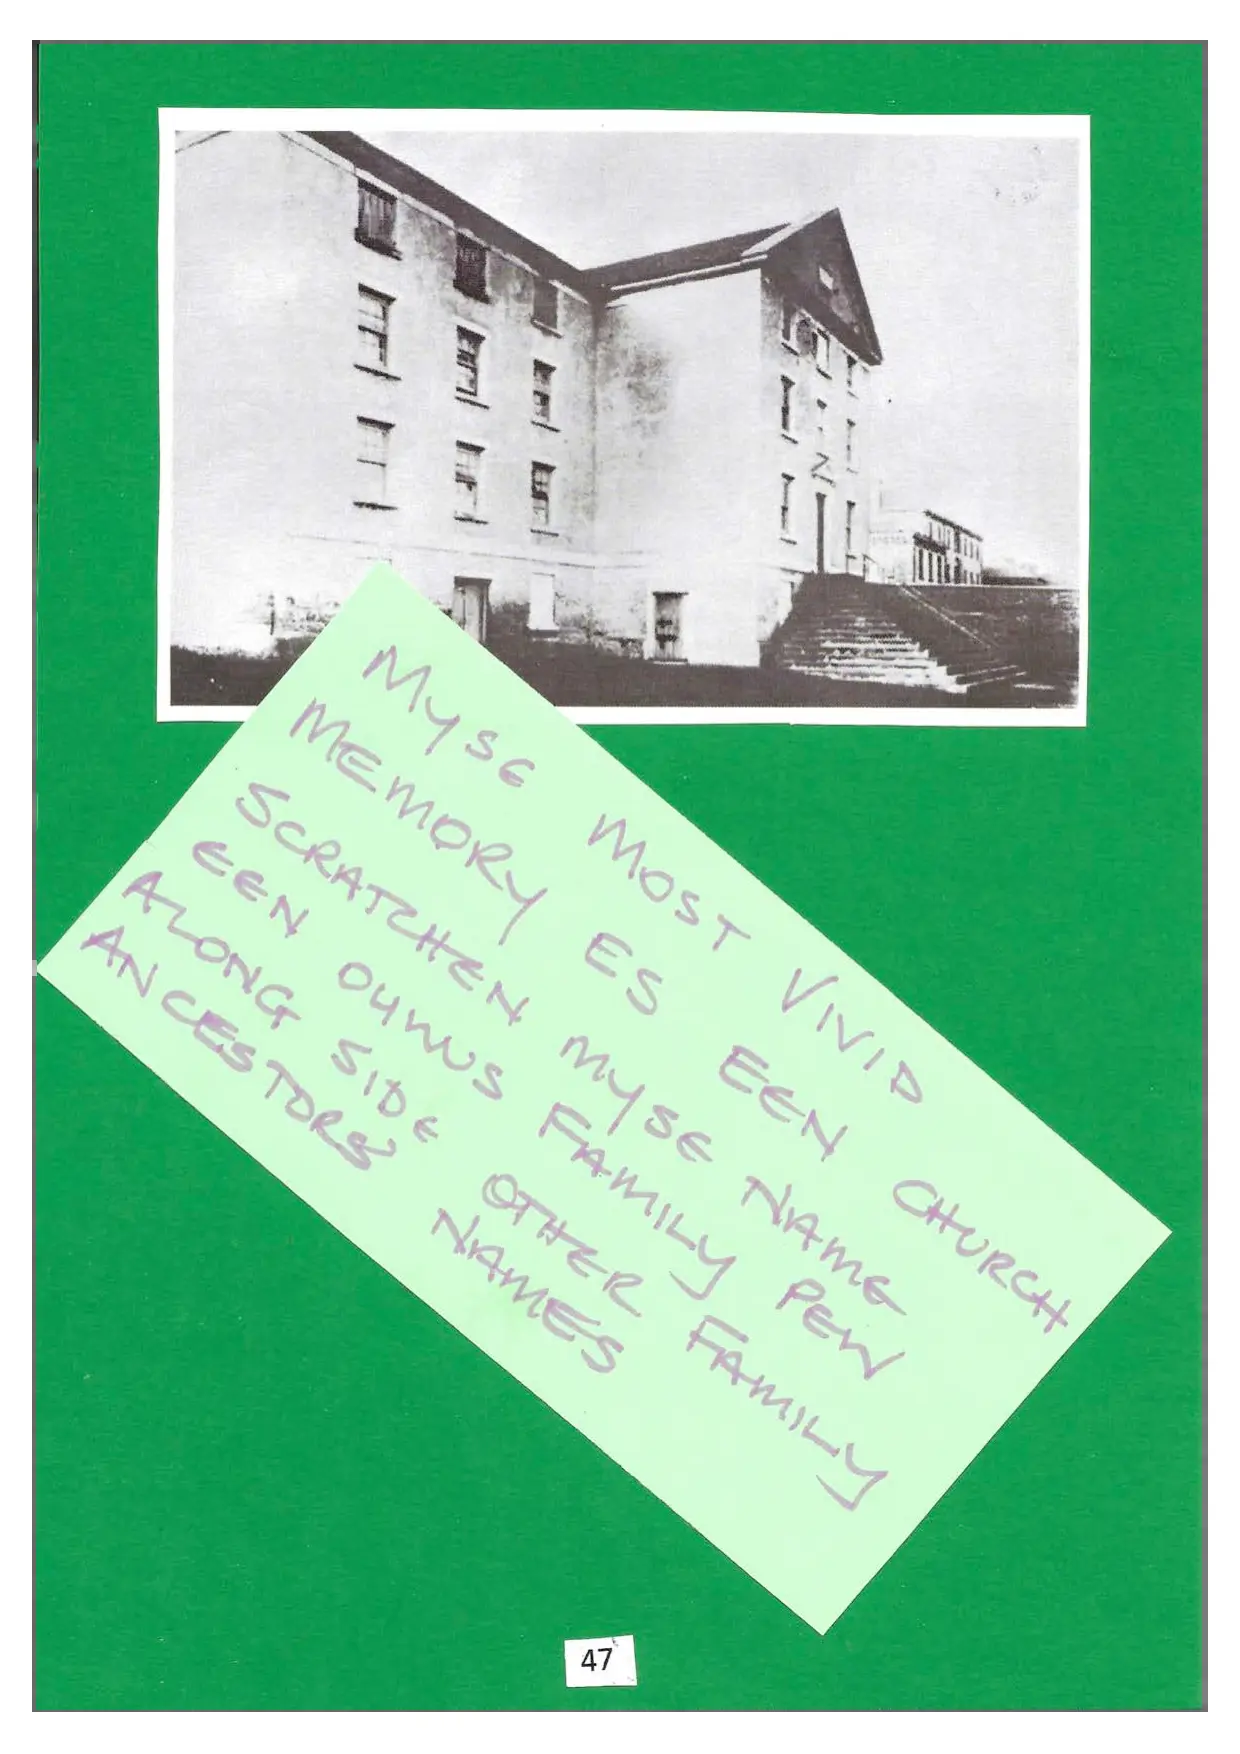 MYSE MOST VIVID
MEMORY ES EEN CHURCH
SCRATCHEN MYSE NAME
EEN OUWUS FAMILY PEW
ALONG SIDE OTHER FAMILY
ANCESTORS NAMES
47